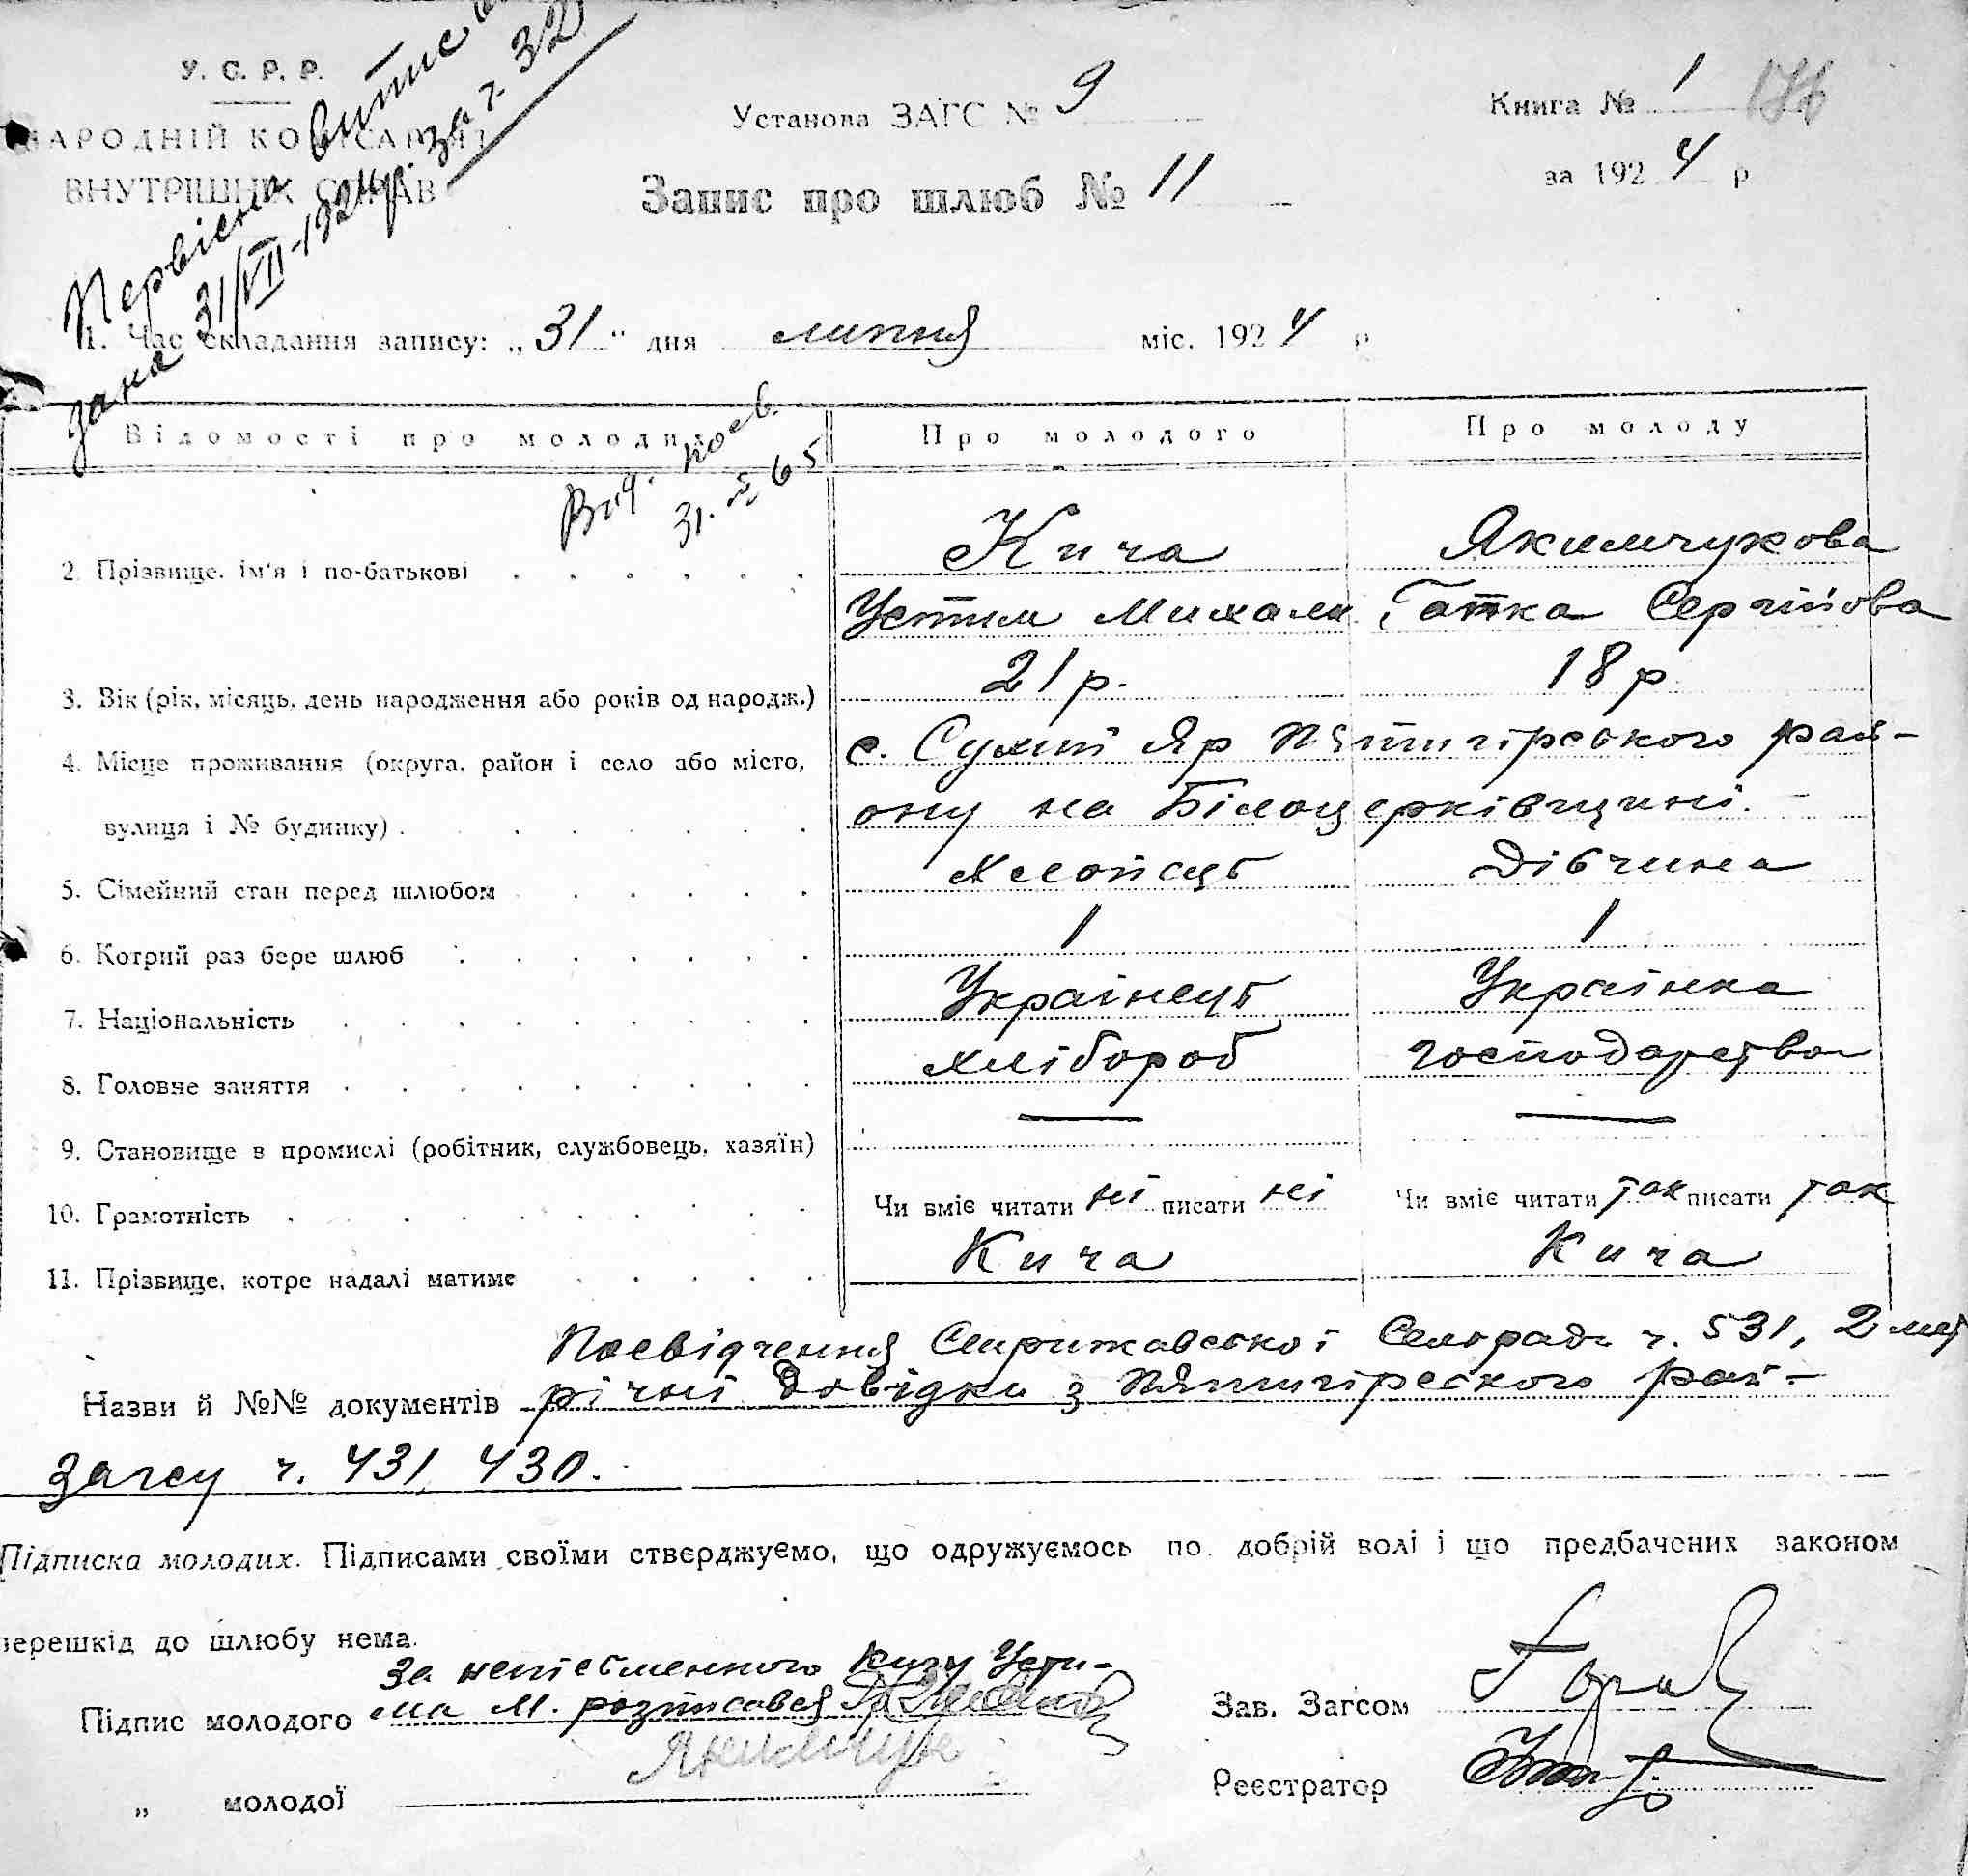 У. С. Р. Р.
НАРОДНІЙ КОМІСАРІЯТ
ВНУТРІШНІХ СПРАВ
Первісна випис
дана 31/VII-1924 р. за ч. 32
Установа ЗАГС № 9
Книга № 1
за 1924 р
Запис про шлюб № 11
1. Час складання запису: „31“ дня липня міс. 1924 р
Відомості про молодих
Про молодого
Про молоду
Вид.
31. 65
2. Прізвище, ім'я і по-батькові
Кича
Якимчукова
Устим Михайл.
Гапка Сергійова
3. Вік (рік, місяць, день народження або років од народж.)
21 р.
18 р
4. Місце проживання (округа, район і село або місто,
вулиця і № будинку)
с. Сухий Яр Пятигірського рай-
ону на Білоцерківщині.
5. Сімейний стан перед шлюбом
хлопець
дівчина
6. Котрий раз бере шлюб
1
1
7. Національність
Українець
Українка
8. Головне заняття
хлібороб
господарство
9. Становище в промислі (робітник, службовець, хазяїн)
—
—
10. Грамотність
Чи вміє читати ні писати ні
Чи вміє читати так писати так
11. Прізвище, котре надалі матиме
Кича
Кича
Посвідчення Сельради ч. 531, 2 мет
Назви й №№ документів річні довідки з Пятигірського рай-
загсу ч. 431, 430.
Підписка молодих. Підписами своїми стверджуємо, що одружуємось по добрій волі і що предбачених законом
перешкід до шлюбу нема.
За неписьменного Кичу Усти-
Підпис молодого ма М. розписався
Якимчук
„ молодої
Зав. Загсом
Реєстратор